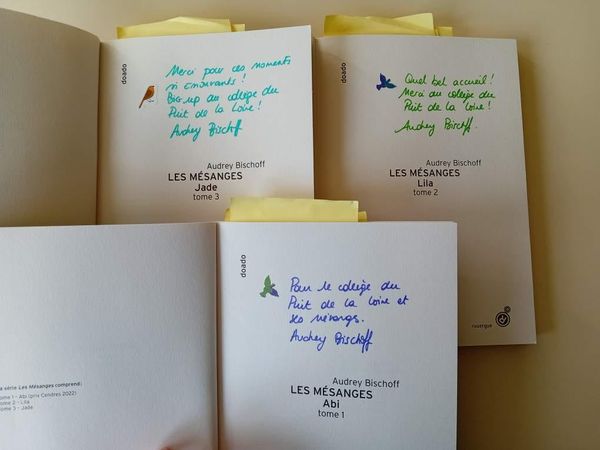 doado
Merci pour ces moments
si émouvants !
Big up au collège du
Puit de la Loire !
Audrey Bischoff
Audrey Bischoff
LES MÉSANGES
Jade
tome 3
doado
Quel bel accueil !
Merci au collège du
Puit de la Loire !
Audrey Bischoff.
Audrey Bischoff
LES MÉSANGES
Lila
tome 2
rouergue
doado
Pour le collège du
Puit de la Loire et
ses mésanges.
Audrey Bischoff
Audrey Bischoff
LES MÉSANGES
Abi
tome 1
a série Les Mésanges comprend:
ome 1 - Abi (prix Cendres 2022)
ome 2 - Lila
ome 3 - Jade